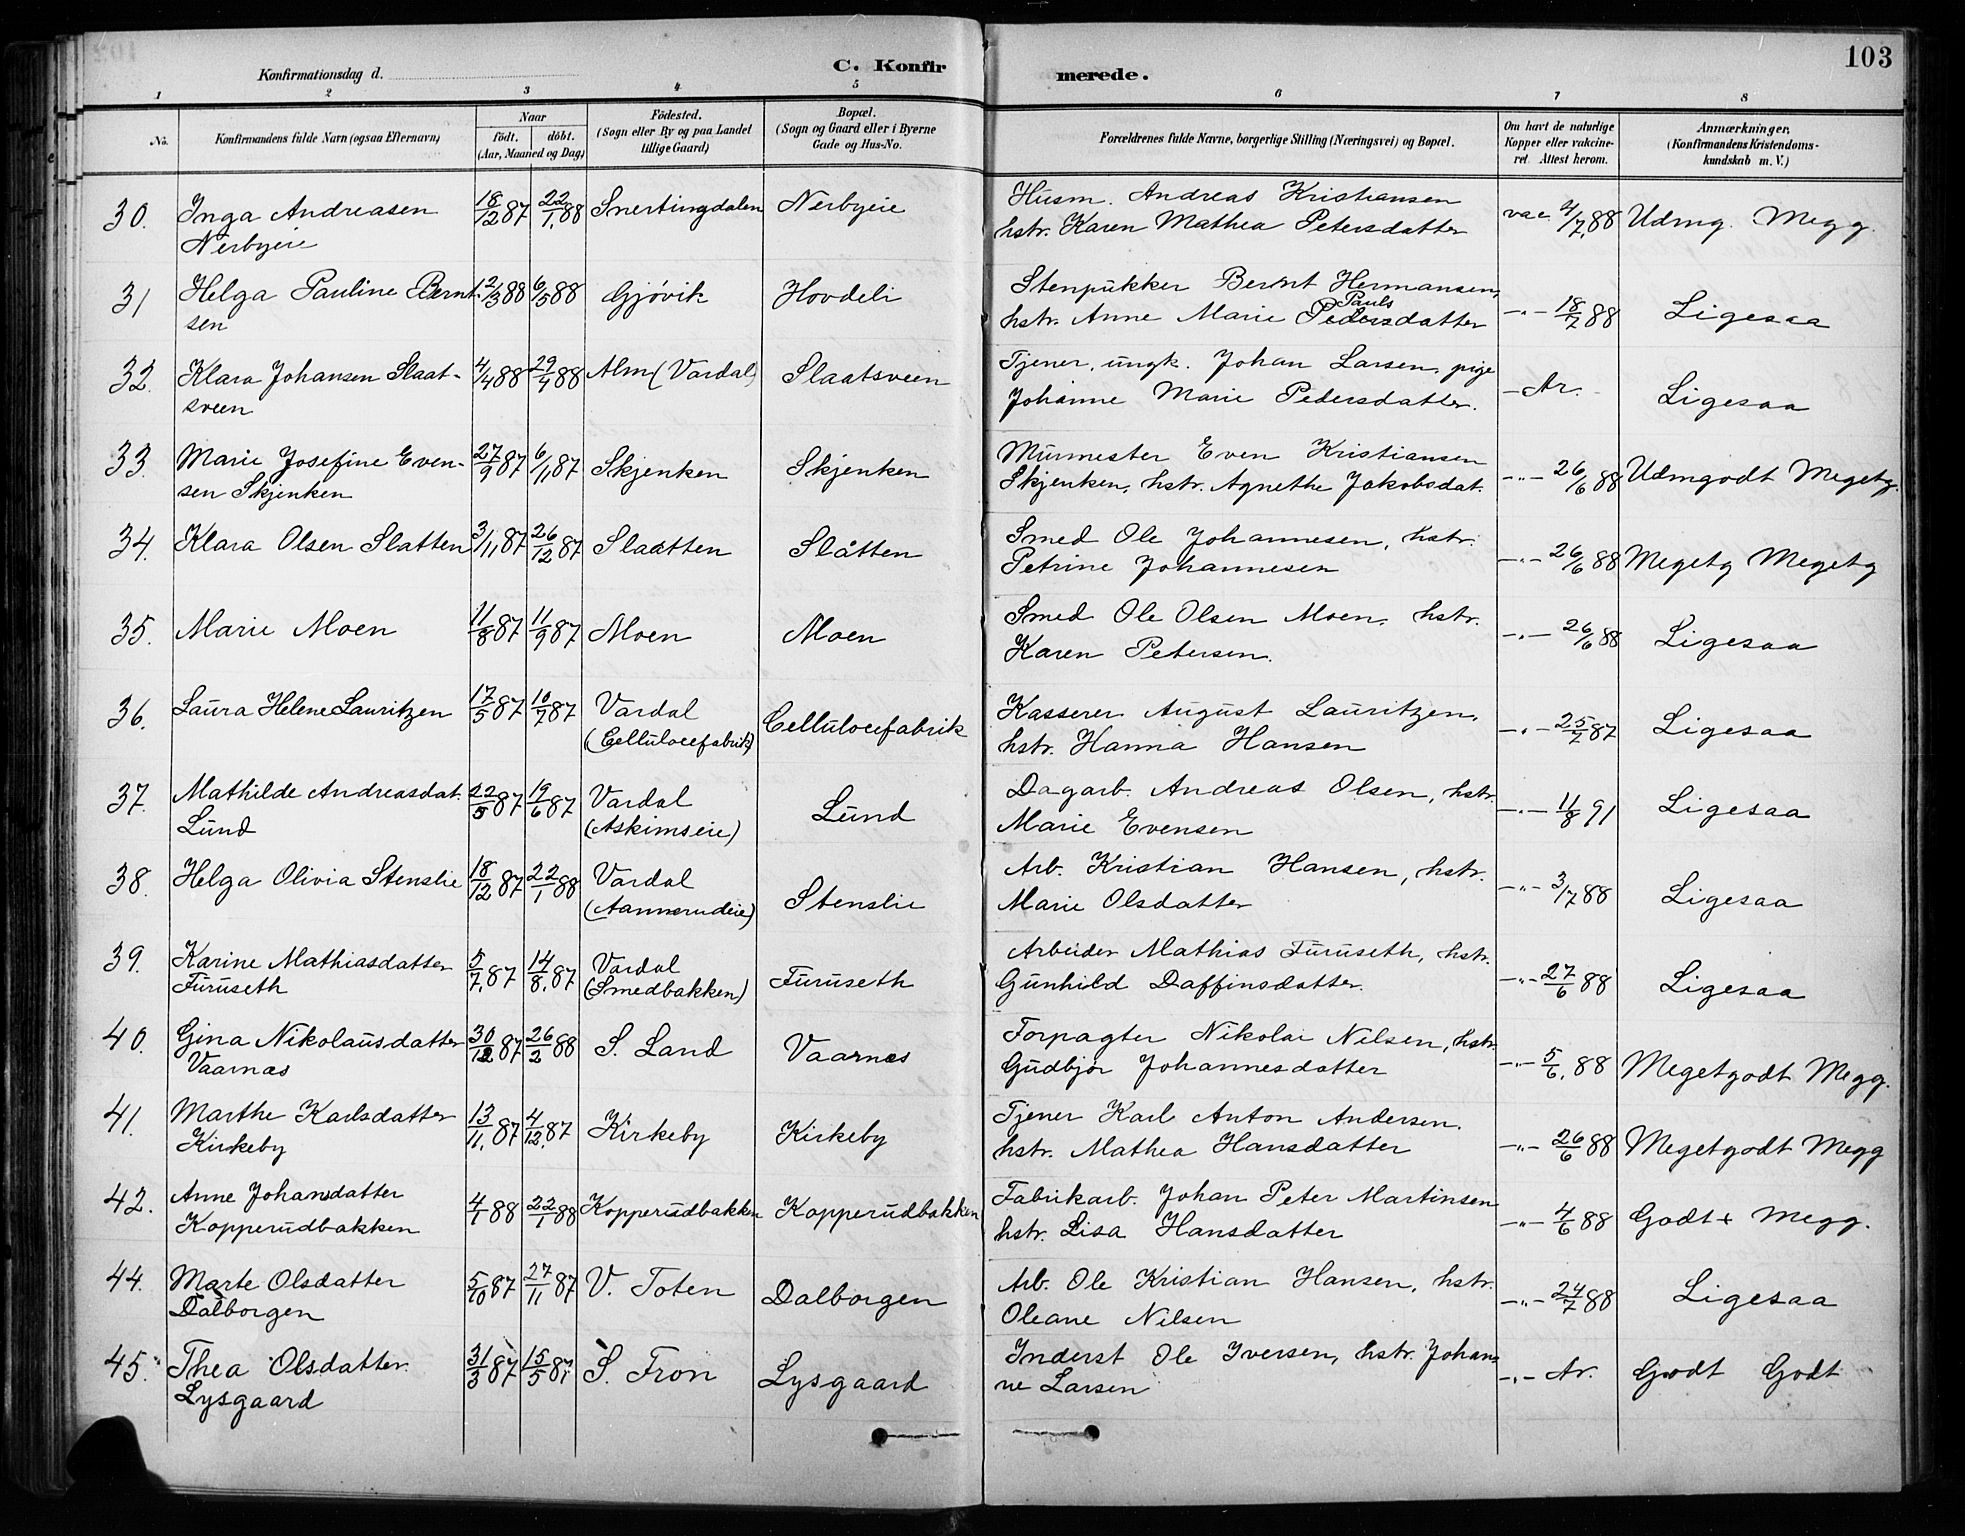 103
Konfirmationsdag d.
C. Konfirmerede.
1 2 3 4 5 6 7 8
No.
Konfirmandens fulde Navn (ogsaa Efternavn)
Naar
født. døbt.
(Aar, Maaned og Dag)
Fødested.
(Sogn eller By og paa Landet
tillige Gaard)
Bopæl.
(Sogn og Gaard eller i Byerne
Gade og Hus-No.
Forældrenes fulde Navne, borgerlige Stilling (Næringsvei) og Bopæl.
Om havt de naturlige
Kopper eller vakcine-
ret Attest herom.
Anmærkninger.
(Konfirmandens Kristendoms-
kundskab m. V.)
30. Inga Andreasen 18/12 87 22/1 88 Snertingdalen Nerbyeie Husm. Andreas Kristiansen vac. 4/7 88 Udmg. Megg.
Nerbyeie hstr. Karen Mathea Petersdatter
31 Helga Pauline Bernt- 12/3 88 6/5 88 Gjøvik Hovdeli Stenpukker Bernt Hermansen, -"- 18/7 88 Ligesaa
sen hstr. Anne Marie Pedersdatter
Pauls
32. Klara Johansen Slaat- 4/4 88 29/4 88 Alm (Vardal) Slaatsveen Tjener, ungk. Johan Larsen, pige - Ar. Ligesaa
sveen Johanne Marie Pedersdatter.
33. Marie Josefine Even- 27/9 87 6/11 87 Skjenken Skjenken Murmester Even Kristiansen -"- 26/6 88 Udmgodt Megetg.
sen Skjenken Skjenken, hstr. Agnethe Jakobsdat.
34. Klara Olsen Slatten 3/11 87 26/12 87 Slaatten Slåtten Smed Ole Johannesen, hstr. -"- 26/6 88 Megetg Megetg
Petrine Johannesen
35. Marie Moen 11/8 87 11/9 87 Moen Moen Smed Ole Olsen Moen, hstr. -"- 26/6 88 Ligesaa
Karen Petersen.
36. Laura Helene Lauritzen 17/5 87 10/7 87 Vardal Cellulocefabrik Kasserer August Lauritzen, -"- 25/7 87 Ligesaa
(Cellulocefabrik) hstr. Hanna Hansen
37. Mathilde Andreasdat. 22/5 87 19/6 87 Vardal Lund Dagarb. Andreas Olsen, hstr. -"- 11/8 91 Ligesaa
Lund (Askimseie) Marie Evensen
38. Helga Olivia Stenslie 18/12 87 22/1 88 Vardal Stenslie Arb. Kristian Hansen, hstr. -"- 3/7 88 Ligesaa
(Aannerudeie) Marie Olsdatter
39. Karine Mathiasdatter 5/7 87 14/8 87 Vardal Furuseth Arbeider Mathias Furuseth, hstr. -"- 27/6 88 Ligesaa
Furuseth (Smedbakken) Gunhild Daffinsdatter.
40. Gina Nikolausdatter 30/12 87 26/2 88 S. Land Vaarnæs Forpagter Nikolai Nilsen, hstr. -"- 5/6 88 Megetgodt Megg.
Vaarnæs Gudbjør Johannesdatter
41. Marthe Karlsdatter 13/11 87 4/12 87 Kirkeby Kirkeby Tjener Karl Anton Andersen. -"- 26/6 88 Megetgodt Megg
Kirkeby hstr. Mathea Hansdatter
42. Anne Johansdatter 4/1 88 22/1 88 Kopperudbakken Kopperudbakken Fabrikarb. Johan Peter Martinsen -"- 4/6 88 Godt+ Megg.
Kopperudbakken hstr. Lisa Hansdatter
44. Marte Olsdatter 5/10 87 27/11 87 V. Toten Dalborgen Arb. Ole Kristian Hansen, hstr. -"- 24/7 88 Ligesaa
Dalborgen Oleane Nilsen
45. Thea Olsdatter 31/3 87 15/5 87 S. Fron Lysgaard Inderst Ole Iversen, hstr. Johan- -"- Ar. Godt Godt
Lysgaard ne Larsen